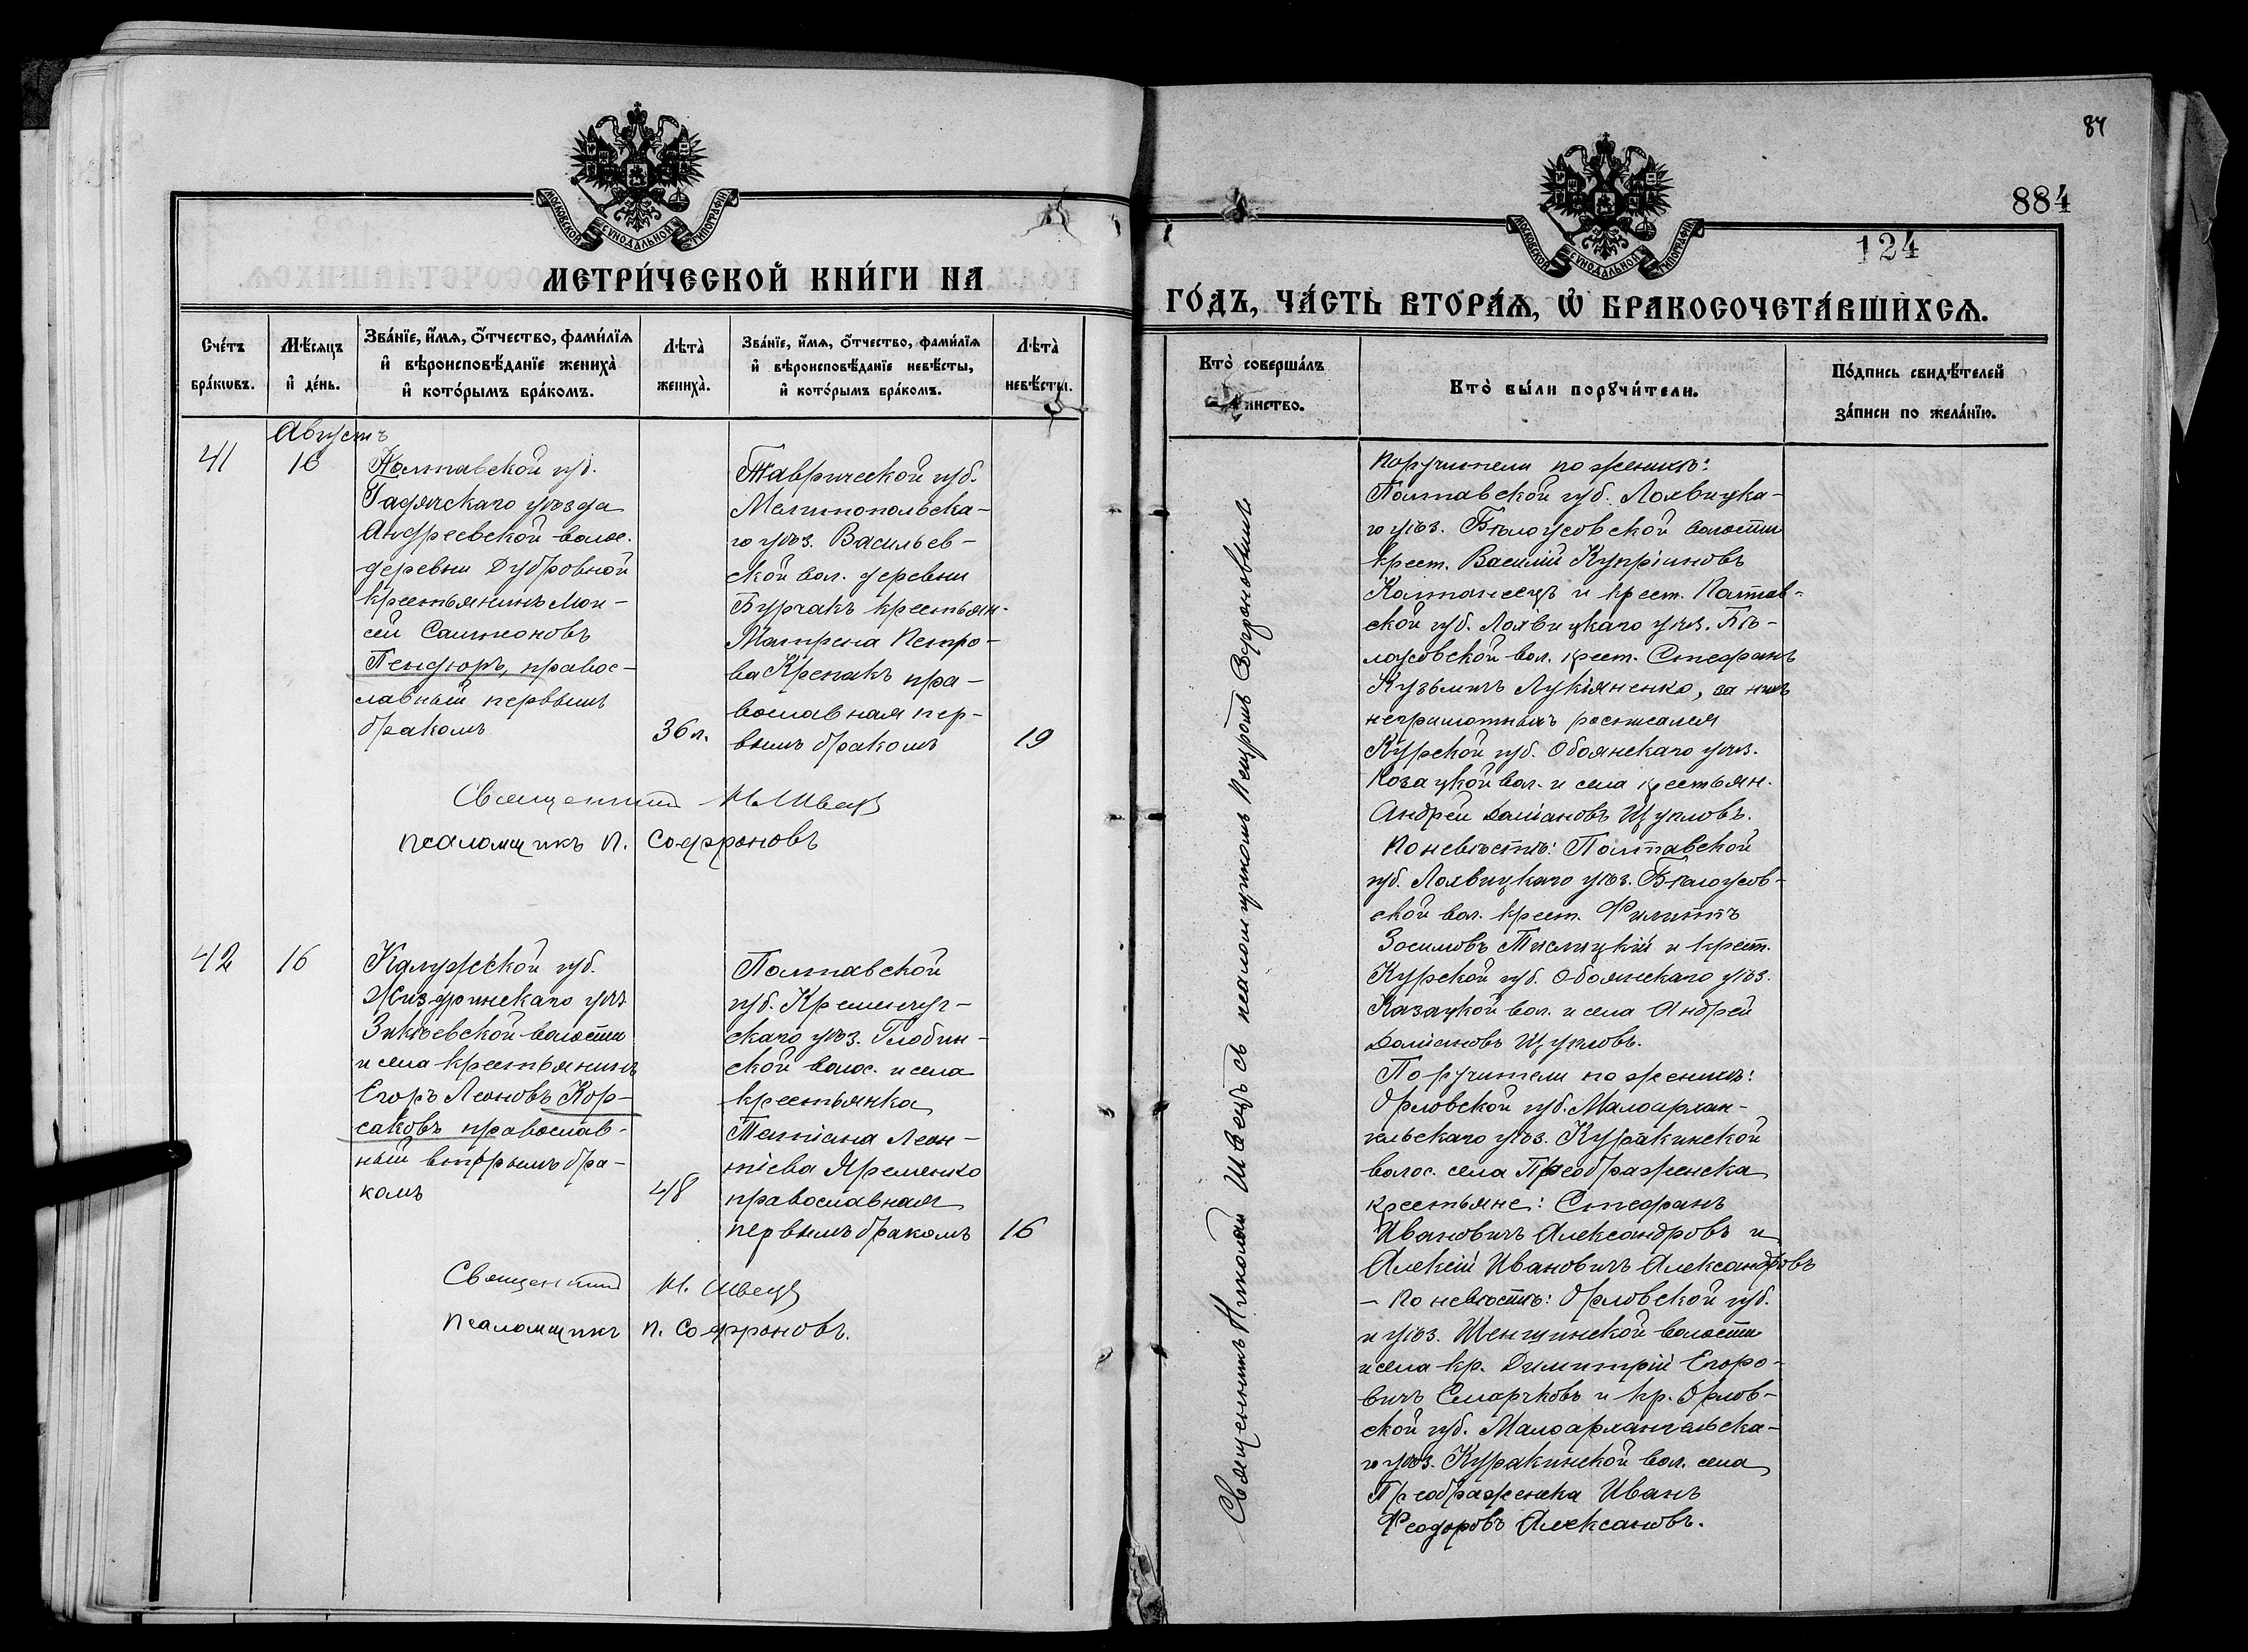 МОСКОВСКОЙ СѴНОДАЛЬНОЙ ТИПОГРАФІИ
МЕТРИ́ЧЕСКОЙ КНИ́ГИ НА
Сче́тъ бра́кѡвъ.
Мѣ́сяцъ и҆ де́нь.
Зва́нїе, и҆́мѧ, ѻ҆́тчество, фами́лїѧ
и҆ вѣроисповѣ́данїе жениха̀
и҆ кото́рымъ бра́комъ.
Лѣта̀ жениха̀.
Зва́нїе, и҆́мѧ, ѻ҆́тчество, фами́лїѧ
и҆ вѣроисповѣ́данїе невѣ́сты,
и҆ кото́рымъ бра́комъ.
Лѣта̀ невѣ́сты.
Августъ
41
16
Полтавской губ.
Гадячскаго уѣзда
Андреевской волос.
деревни Дубровной
крестьянинъ Мои-
сей Самсоновъ
Пендюръ, правос-
лавный первымъ
бракомъ
36 л.
Таврической губ.
Мелитопольска-
го уѣз. Васильев-
ской вол. деревни
Бурчакъ крестьян.
Матрена Петро-
ва Крепакъ пра-
вославная пер-
вымъ бракомъ
19
Священникъ Н. Швецъ
псаломщикъ П. Софроновъ
42
16
Калужской губ.
Жиздринскаго уѣз
Зикѣевской волости
и села крестьянинъ
Егоръ Леоновъ Кор-
саковъ православ-
ный вторымъ бра-
комъ
48
Полтавской
губ. Кременчуг-
скаго уѣз. Глобин-
ской волос. и села
крестьянка
Татіана Леон-
тіева Яременко
православная
первымъ бракомъ
16
Священникъ Н. Швецъ
псаломщикъ П. Софроновъ.
84
884
124
МОСКОВСКОЙ СѴНОДАЛЬНОЙ ТИПОГРАФІИ
ГО́ДЪ, ЧА́СТЬ ВТОРА́Ѧ, Ѽ БРАКОСОЧЕТА́ВШИХСѦ.
Кто̀ соверша́лъ
инство.
Кто̀ бы́ли порꙋчи́тели.
По́дпись свидѣ́телей
за́писи по жела́нїю.
Священникъ Николай Швецъ съ псаломщикомъ Петромъ Софроновымъ
Поручители по женихѣ:
Полтавской губ. Лохвицка-
го уѣз. Бѣлоусовской волости
крест. Василій Купріановъ
и крест. Полтав-
ской губ. Лохвицкаго уѣз. Бѣ-
лоусовской вол. крест. Стефанъ
Кузьмичъ Лукіяненко, за нихъ
неграмотныхъ росписался
Курской губ. Обоянскаго уѣз.
Козацкой вол. и села крестьян.
Андрей Даміановъ Щупловъ.
По невѣстѣ: Полтавской
губ. Лохвицкаго уѣз. Бѣлоусов-
ской вол. крест. Филиппъ
Зосимовъ и крест.
Курской губ. Обоянскаго уѣз.
Казацкой вол. и села Андрей
Даміановъ Щупловъ.
Поручители по женихѣ:
Орловской губ. Малоархан-
гельскаго уѣз. Куракинской
волос. села Преображенска
крестьяне: Стефанъ
Ивановичъ Александровъ и
Алексій Ивановичъ Александровъ
– По невѣстѣ: Орловской губ.
и уѣз. волости
и села кр. Димитрій Егоро-
вичъ Смарчковъ и кр. Орлов-
ской губ. Малоархангельска-
го уѣз. Куракинской вол. села
Преображенска Иванъ
Феодоровъ Алексановъ.